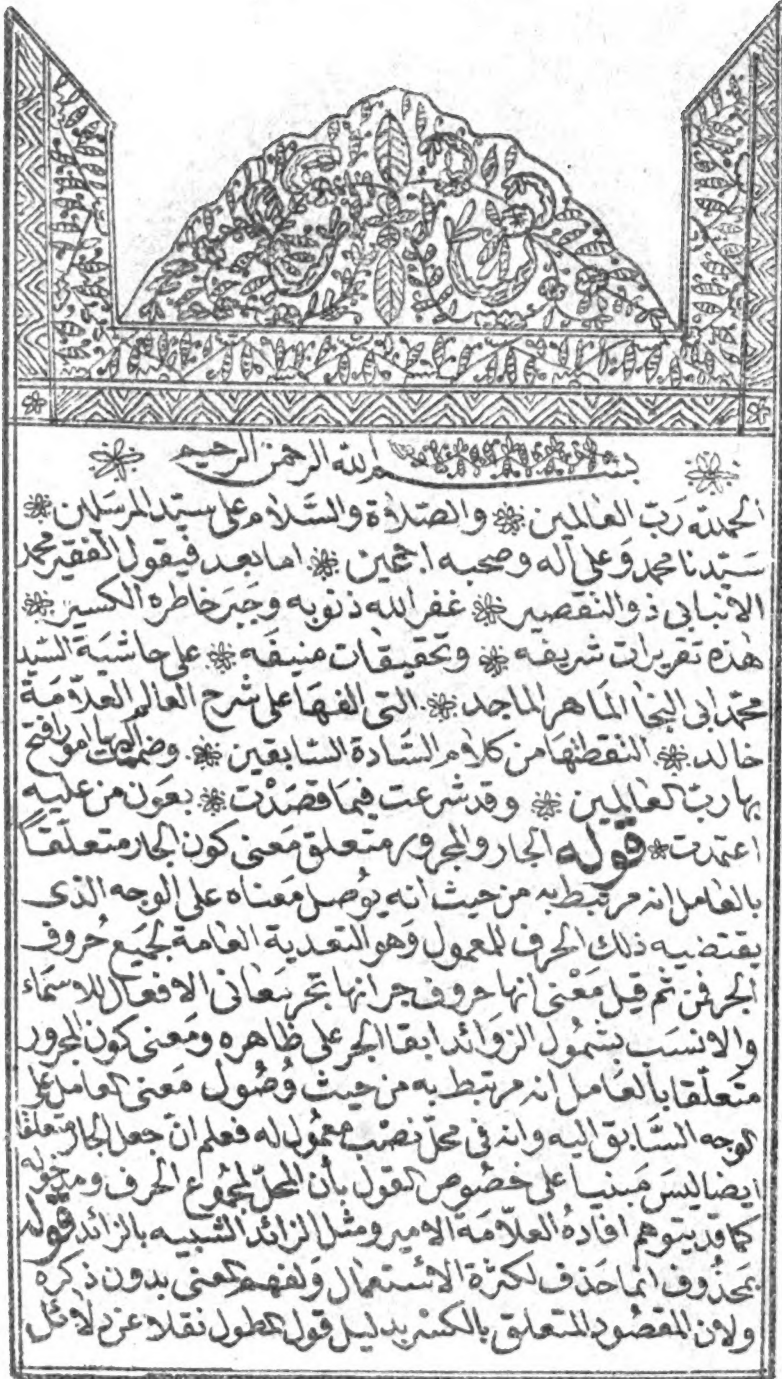 بسم الله الرحمن الرحيم
الحمد لله رب العالمين والصلاة والسلام على سيد المرسلين
سيدنا محمد وعلى آله وصحبه اجمعين اما بعد فيقول الفقير محمد
الانبابى ذو التقصير غفر الله ذنوبه وجبر خاطره الكسير
هذه تقريرات شريفه وتحقيقات منيفه على حاشية السيد
محمد ابى النجا الماهر الماجد التى الفها على شرح العالم العلامة
خالد التقطتها من كلام السادة السابقين وضممت اليها امورا فتح
بها رب العالمين وقد شرعت فيما قصدت بعون من عليه
اعتمدت قوله الجار والمجرور متعلق معنى كون الجار متعلقا
بالعامل انه مرتبط به من حيث انه يوصل معناه على الوجه الذى
يقتضيه ذلك الحرف للمعمول وهو التعدية العامة لجميع حروف
الجر فمن ثم قيل معنى انها حروف جر انها تجر معانى الافعال للاسماء
والانسب بشمول الزوائد ابقا الجر على ظاهره ومعنى كون المجرور
متعلقا بالعامل انه مرتبط به من حيث وصول معنى العامل على
الوجه السابق اليه وانه فى محل نصب معمول له فعلم ان جعل الجار متعلقا
ايضا ليس مبنيا على خصوص القول بأن المحل لمجموع الحرف ومدخوله
كما قد يتوهم افاده العلامة الامير ومثل الزائد الشبيه بالزائد قوله
بمحذوف انما حذف لكثرة الاستعمال ولفهم المعنى بدون ذكره
ولان المقصود المتعلق بالكسر بدليل قول المطول نقلا عن دلائل